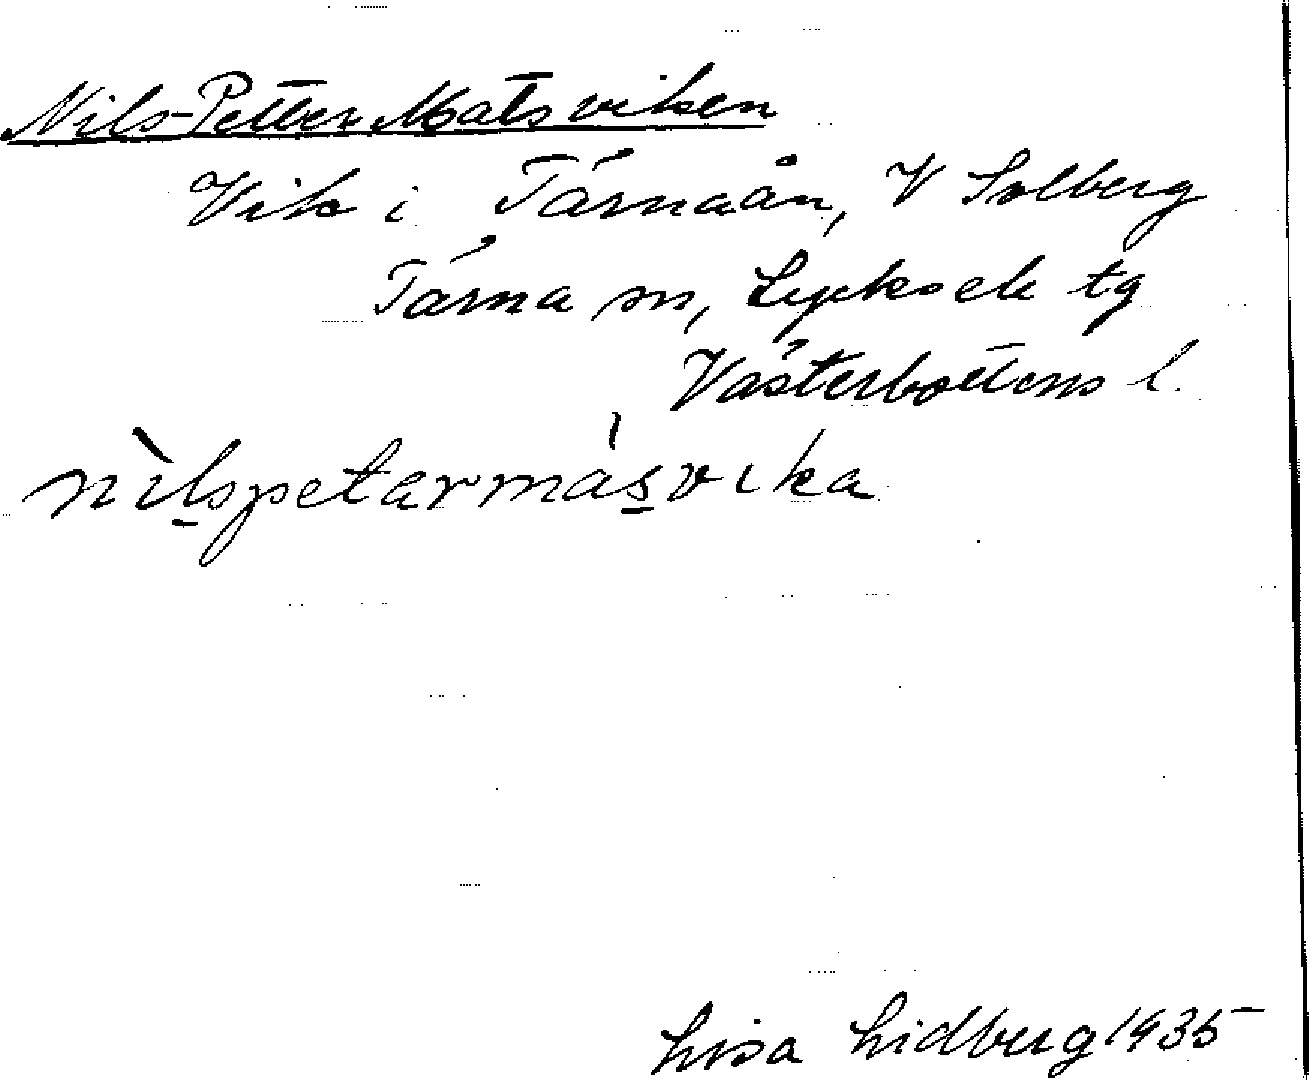 Nils-Petter Matsviken
Vik i Tärnaån, V Solberg
Tärna sn, Lycksele tg
Västerbottens l.
nìlspetarmásvika
Lisa Lidberg 1935